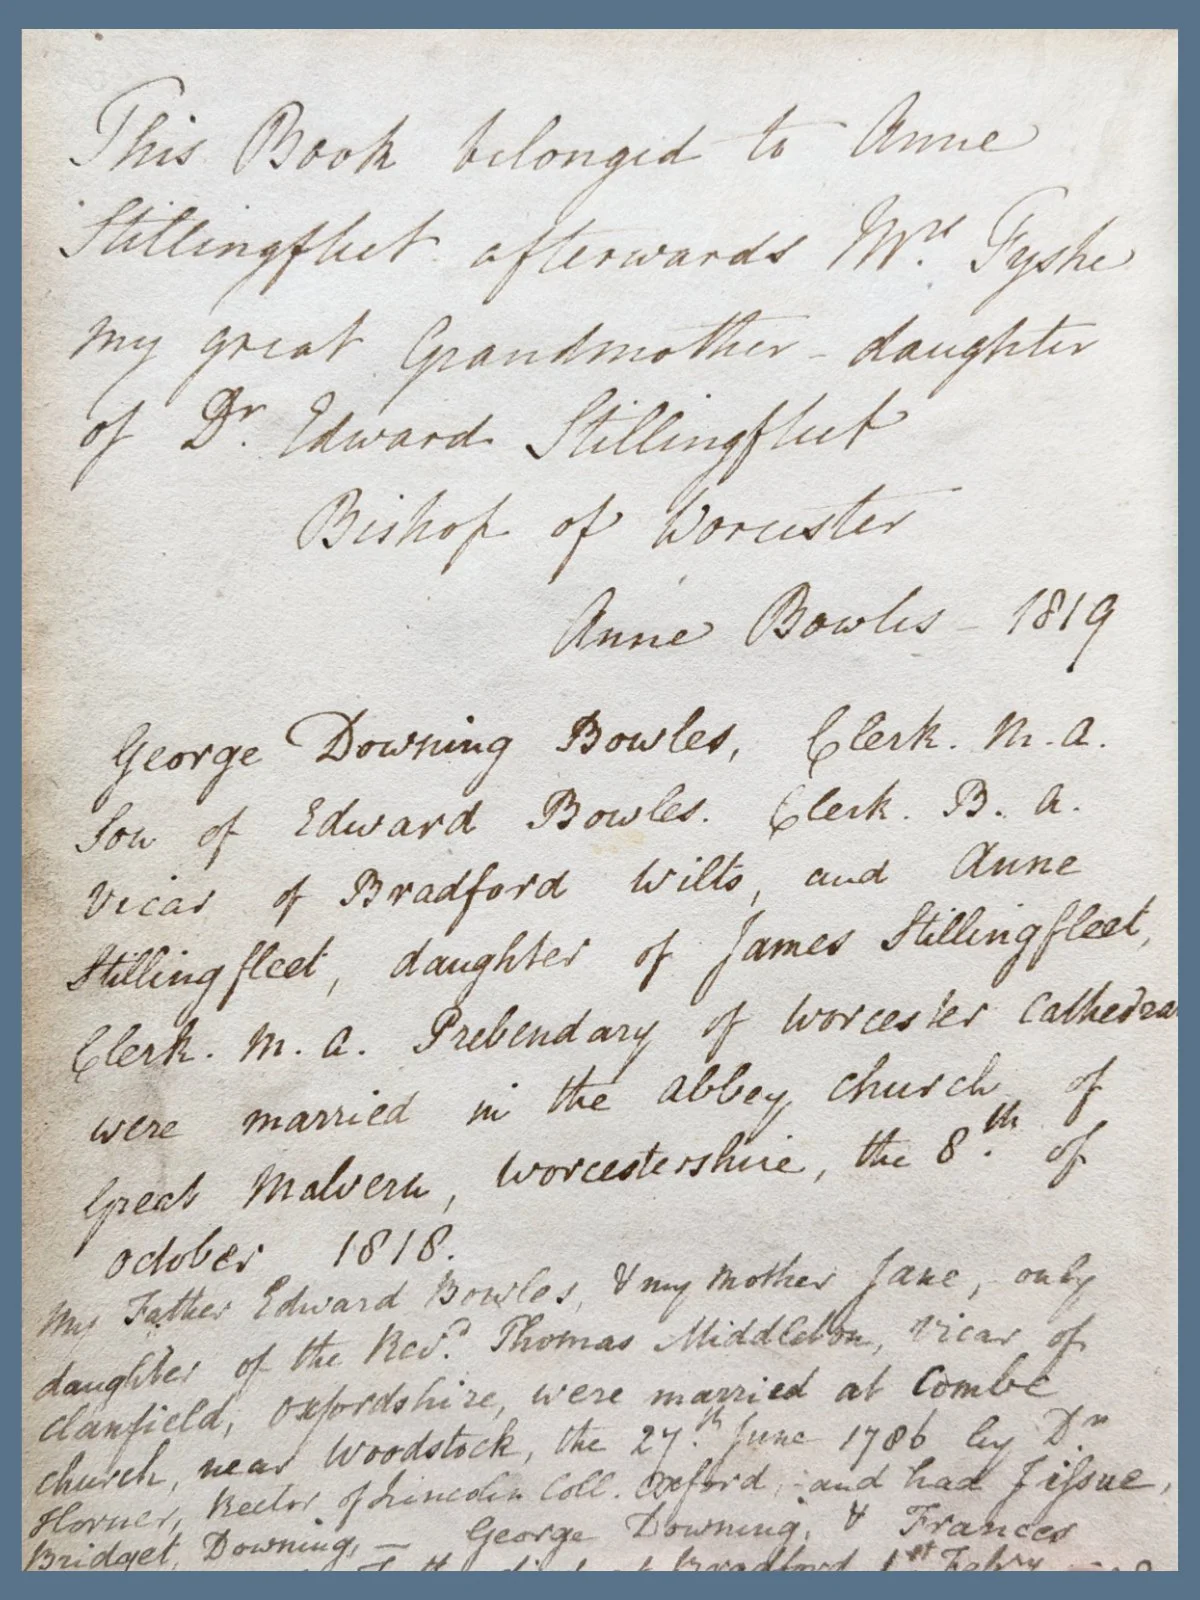 This Book belonged to Anne
Stillingfleet afterwards Mrs. Fyshe
my great Grandmother - daughter
of Dr. Edward Stillingfleet
Bishop of Worcester
Anne Bowles - 1819
George Downing Bowles, Clerk. M. A.
Son of Edward Bowles. Clerk. B. A.
Vicar of Bradford Wilts, and Anne
Stillingfleet, daughter of James Stillingfleet,
Clerk. M. A. Prebendary of Worcester Cathedra
were married in the Abbey Church of
Great Malvern, Worcestershire, the 8th. of
October 1818.
My Father Edward Bowles, & my Mother Jane, only
daughter of the Revd. Thomas Middleton, Vicar of
Clanfield, Oxfordshire, were married at Combe
Church, near Woodstock, the 27th. June 1786 by Dr
Horner, Rector of Lincoln Coll. Oxford, - and had issue,
Bridget, Downing, — George Downing, & Frances
Bradford 1st Febry